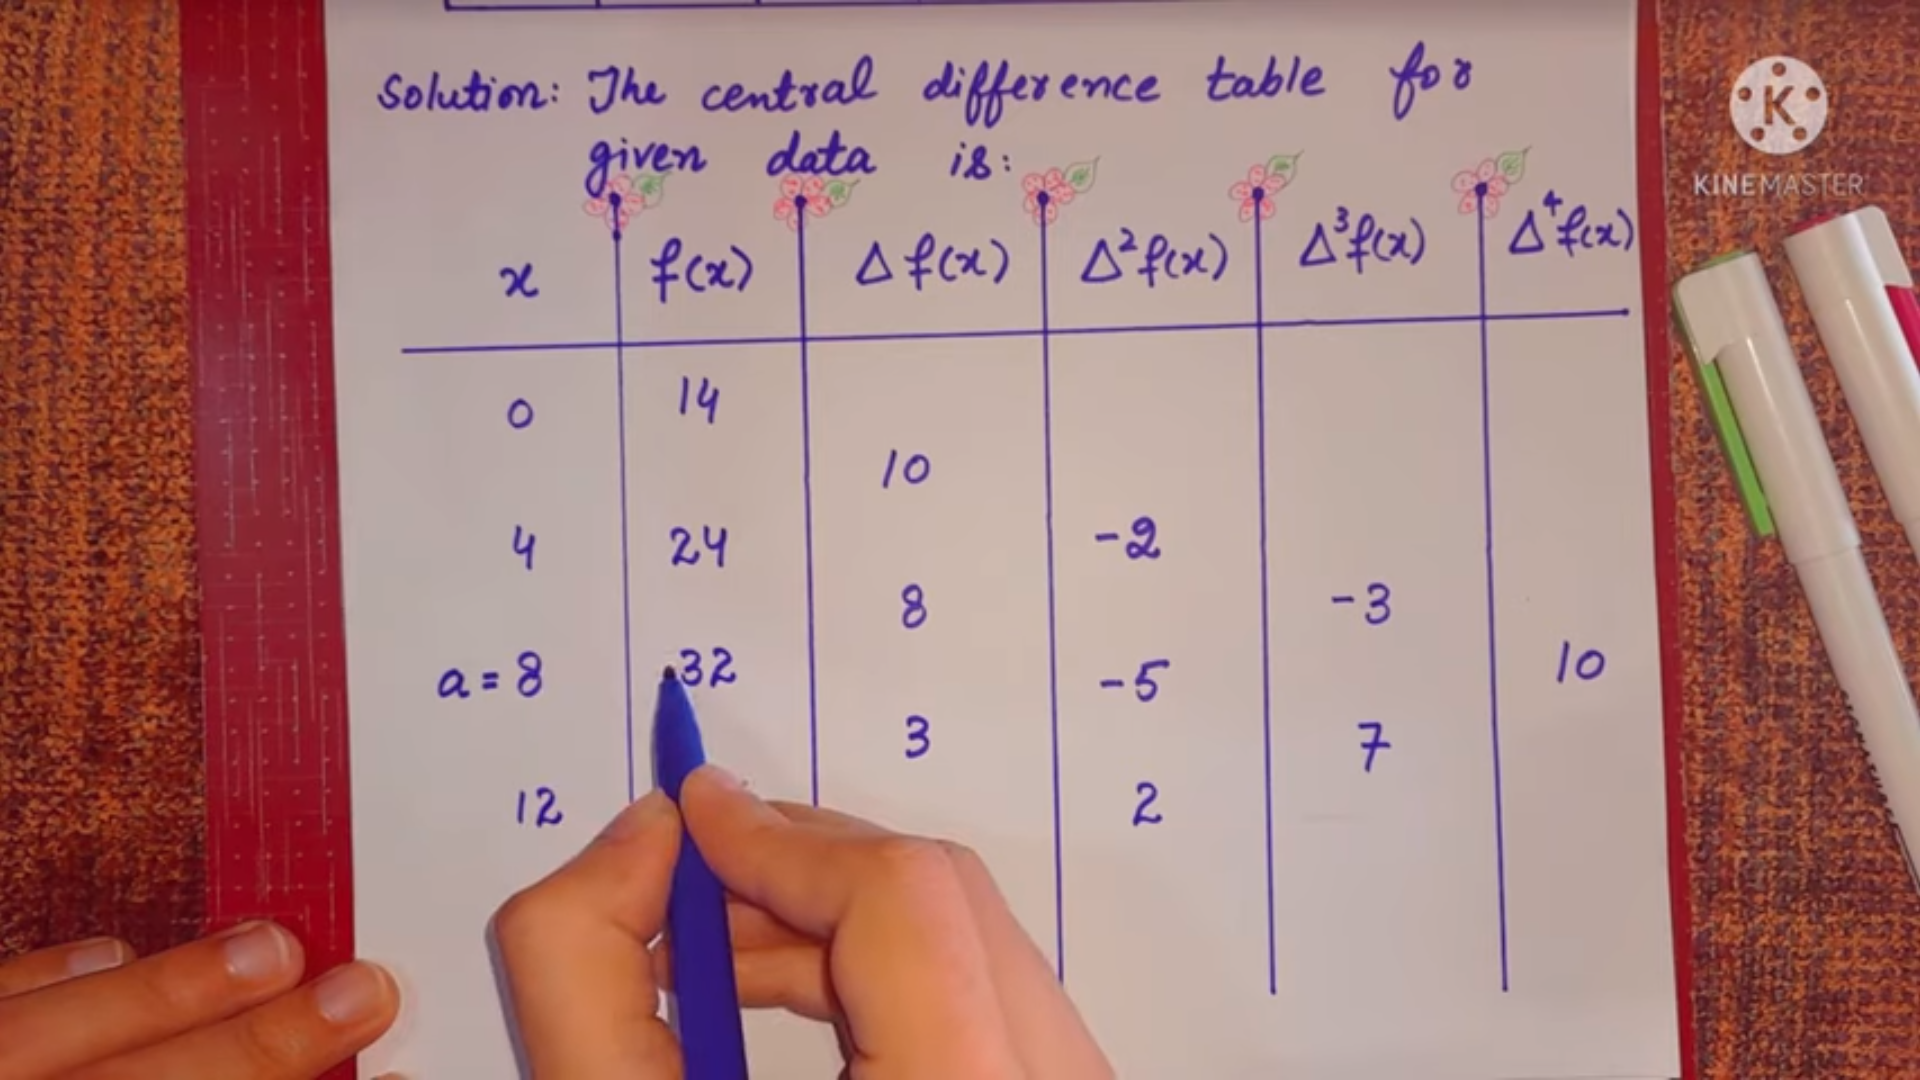 Solution: The central difference table for
given data is:
x f(x) Δf(x) Δ²f(x) Δ³f(x) Δ⁴f(x)
0 14
10
4 24 -2
8 -3
a = 8 32 -5 10
3 7
12 2
K
KINEMASTER